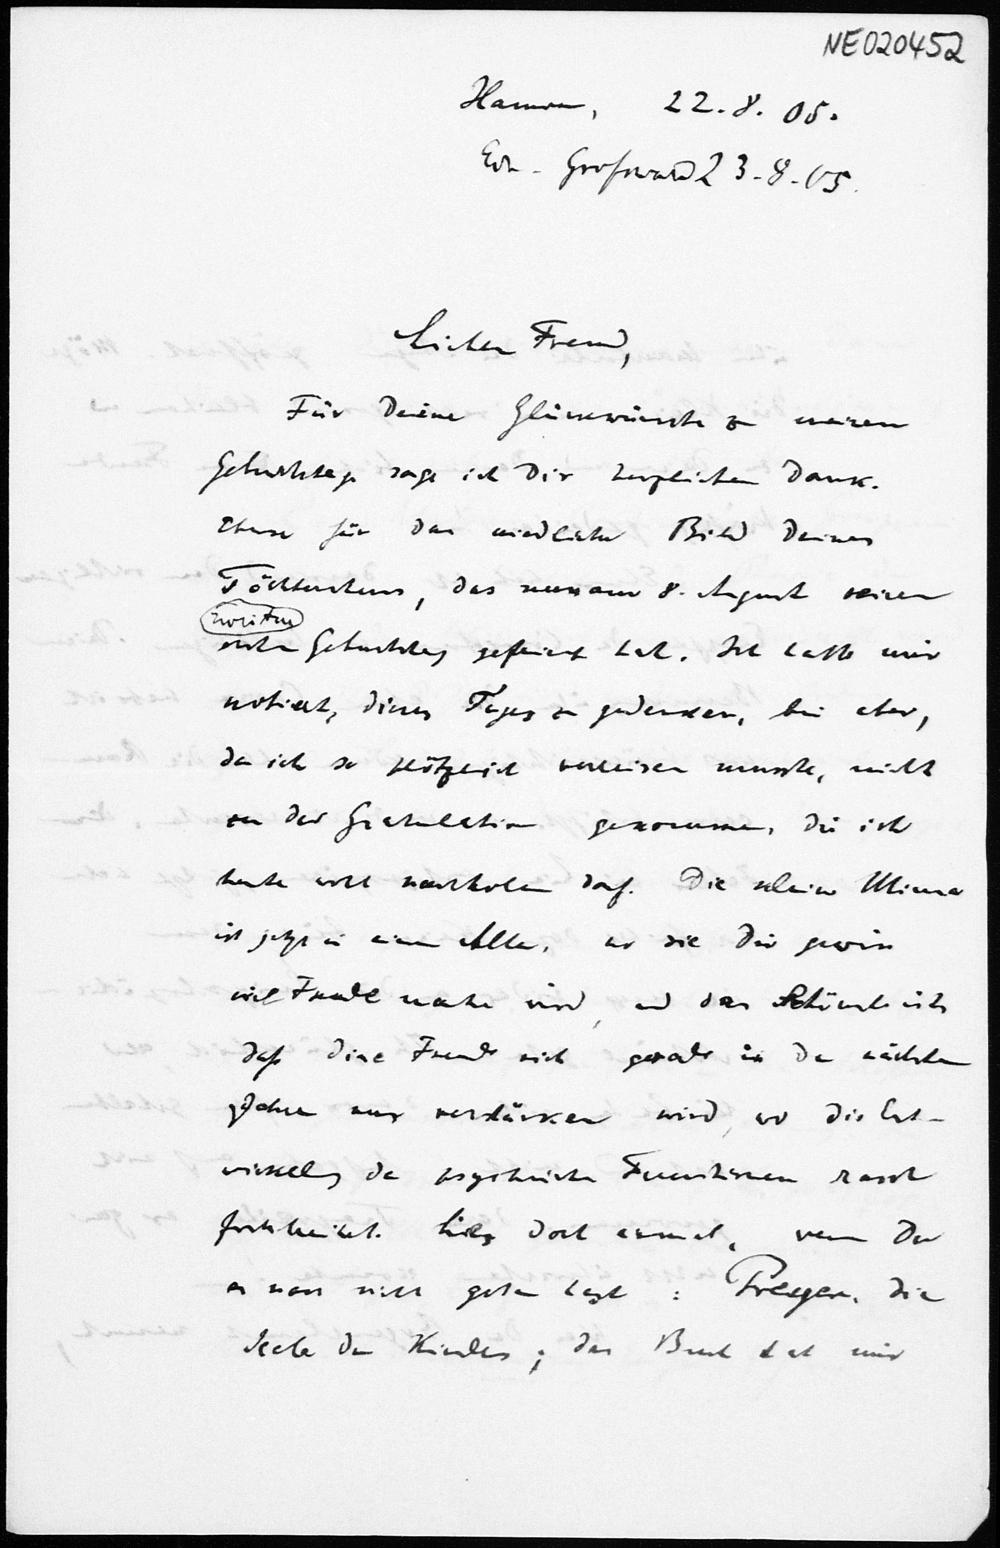 NE020452
22.8.05.
23.8.05.
Lieber Freund,
Für Deine Glückwünsche zu meinem
Geburtstage sage ich Dir herzlichen Dank.
Ebenso für das niedliche Bild Deines
Töchterchens, das nun am 8. August seinen
zweiten
Geburtstag gefeiert hat. Ich hatte mir
notiert, dieses Tages zu gedenken, bin aber,
da ich so plötzlich verreisen musste, nicht
zu der Gratulation gekommen, die ich
heute wohl nachholen darf. Die kleine
ist jetzt in einem Alter, wo sie Dir gewiss
viel Freude machen wird, und das Schönste ist,
daß diese Freude sich gerade in den nächsten
Jahren nur verstärken wird, wo die Ent-
wickelung der psychischen Funktionen rasch
fortschreitet. Lies doch einmal, wenn Du
es noch nicht getan hast: Preyer, die
Seele des Kindes; das Buch hat mir